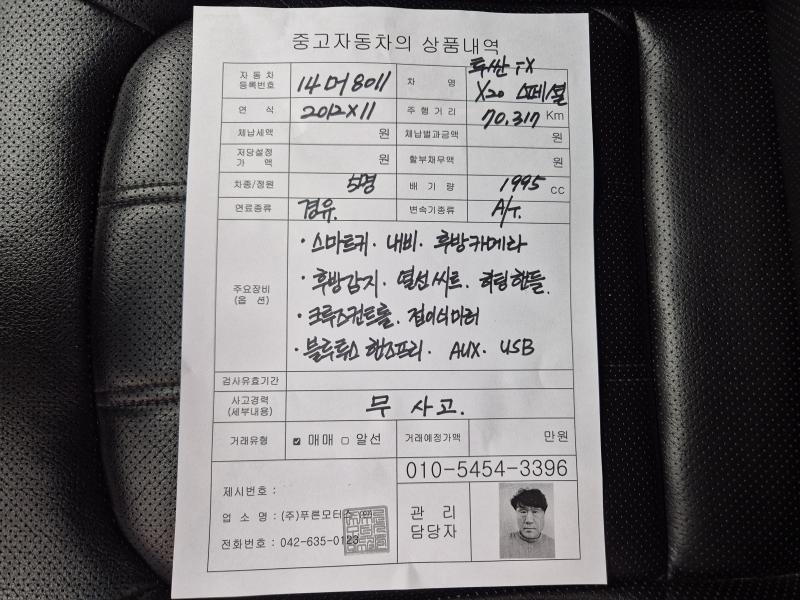 중고자동차의 상품내역
자동차 등록번호 14머8011 차 명 투싼 ix X20 스페셜
연 식 2012X11 주행거리 70,317 Km
체납세액 원 체납벌과금액 원
저당설정 가 액 원 할부채무액 원
차종/정원 5명 배 기 량 1995 cc
연료종류 경유. 변속기종류 A/T.
주요장비 (옵 션)
· 스마트키. 내비. 후방카메라
· 후방감지. 열선씨트. 히팅핸들.
· 크루즈컨트롤. 접이식미러
· 블루투스 핸즈프리. AUX. USB
검사유효기간
사고경력 (세부내용) 무 사고.
거래유형 ☑ 매매 □ 알선 거래예정가액 만원
010-5454-3396
제시번호 :
업 소 명 : (주)푸른모터스
전화번호 : 042-635-0123
관 리
담당자